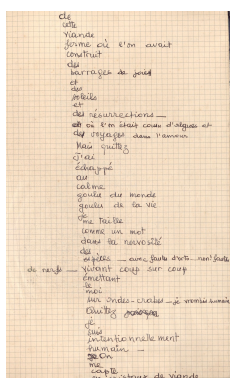 de
cette
viande
forme où l'on avait
construit
des
barrages de joies
et
des
soleils
et
des résurrections —
où l'on était cousu d'algues et
des voyages dans l'amour
Mais quittez
j'ai
échappé
au
calme
goulu du monde
goulu de la vie
je
me taille
comme un mot
dans ta nervosité
des
espèces — avec foule d'nons foule
de nerfs — vivant coup sur coup
émettant
le
moi
sur ondes-crabes — je
Quittez
je
suis
intentionnellement
humain —
On
me
capte
de viande